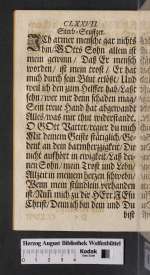 CLXXVII.
Sterb-Seuffzer.
ICh armer mensch gar nichts
bin, GOtts Sohn allein ist
mein gewinn, Daß Er mensch
worden, ist mein trost, Er hat
mich durch sein Blut erlöst, Und
weil ich den zum Helfer hab, Laßt
wer mir dem schaden mag,
Sein treue Hand hat abgewandt
Alles, was mir thut widerstande.
O GOtt Vatter, regier du mich
Mit deinem Geiste stätiglich, Ge-
denk an dein barmhertzigkeit, Die
nicht aufhört in ewigkeit, Laß dei-
nen Sohn, mein Trost und Leben,
Allzeit in meinem hertzen schweben,
Wenn mein stündlein verhanden
ist, Nimm mich zu dir HErr JEsu
Christ, Denn ich bin dein und Du
bist
Herzog August Bibliothek Wolfenbüttel